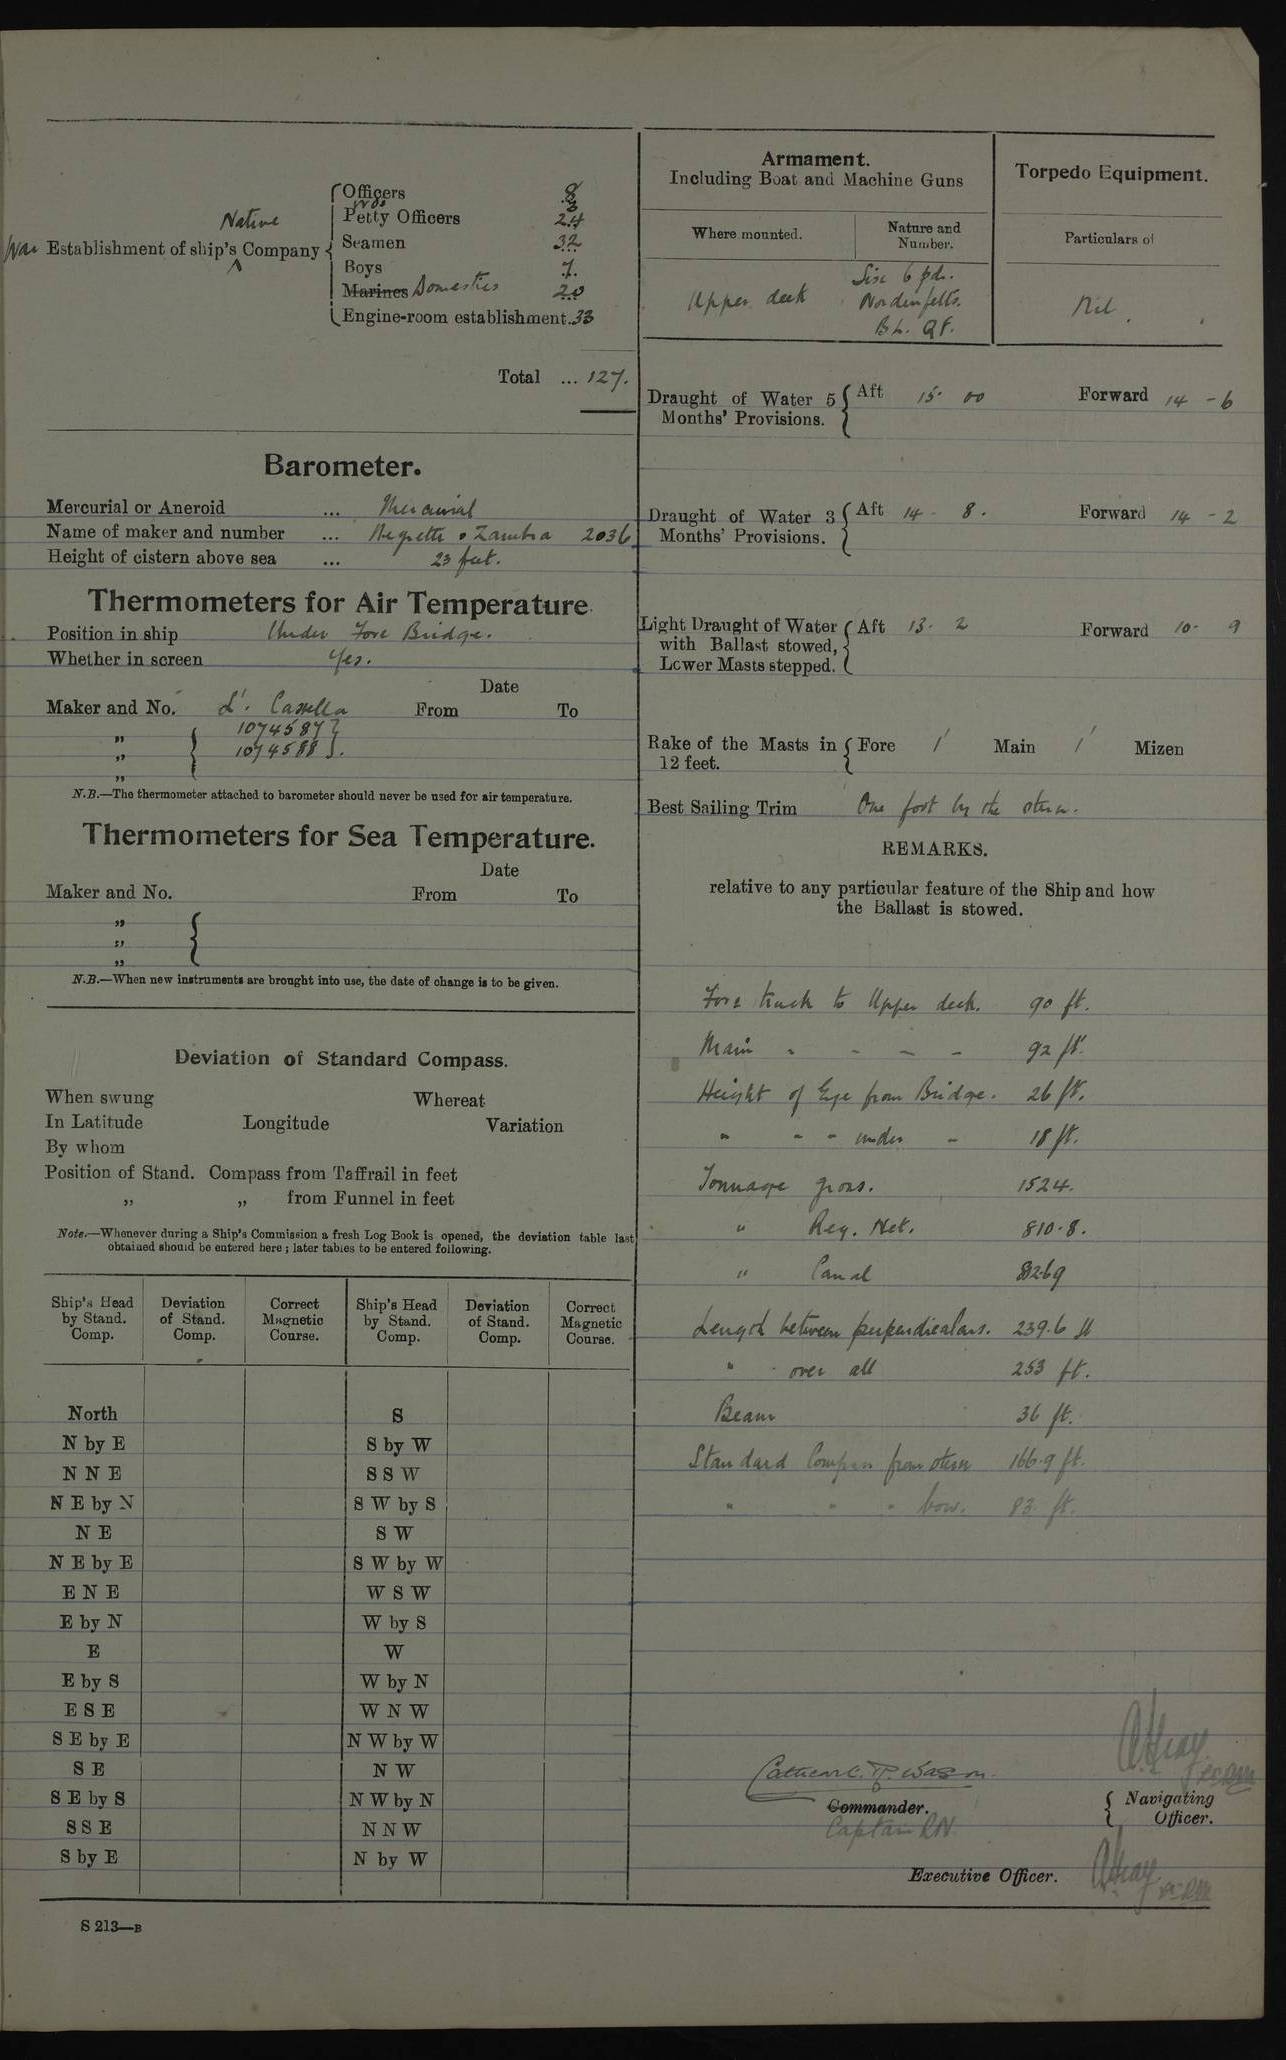 Officers 8
WOs 3
Petty Officers 24
Native
War Establishment of ship's Company
Seamen 32
Boys 7
Marines Domestics 20
Engine-room establishment 33
Total ... 127.
Barometer.
Mercurial or Aneroid ... Mercurial
Name of maker and number ... Negretti & Zambra 2036
Height of cistern above sea ... 23 feet.
Thermometers for Air Temperature
Position in ship Under Fore Bridge.
Whether in screen Yes.
Date
Maker and No. Casella From To
" 1074587
" 1074588
"
N.B.—The thermometer attached to barometer should never be used for air temperature.
Thermometers for Sea Temperature.
Date
Maker and No. From To
"
"
"
N.B.—When new instruments are brought into use, the date of change is to be given.
Deviation of Standard Compass.
When swung Whereat
In Latitude Longitude Variation
By whom
Position of Stand. Compass from Taffrail in feet
" " from Funnel in feet
Note.—Whenever during a Ship's Commission a fresh Log Book is opened, the deviation table last
obtained should be entered here; later tables to be entered following.
Ship's Head by Stand. Comp. Deviation of Stand. Comp. Correct Magnetic Course. Ship's Head by Stand. Comp. Deviation of Stand. Comp. Correct Magnetic Course.
North S
N by E S by W
N N E S S W
N E by N S W by S
N E S W
N E by E S W by W
E N E W S W
E by N W by S
E W
E by S W by N
E S E W N W
S E by E N W by W
S E N W
S E by S N W by N
S S E N N W
S by E N by W
S 213—B
Armament.
Including Boat and Machine Guns
Torpedo Equipment.
Where mounted. Nature and Number. Particulars of
Upper deck Six 6 pdr.
Nordenfelts.
B.L. QF.
Nil
Draught of Water 5 Months' Provisions. Aft 15 - 00 Forward 14 - 6
Draught of Water 3 Months' Provisions. Aft 14 - 8. Forward 14 - 2
Light Draught of Water with Ballast stowed, Lower Masts stepped. Aft 13 - 2 Forward 10 - 9
Rake of the Masts in 12 feet. Fore 1' Main 1' Mizen
Best Sailing Trim One foot by the stern.
REMARKS.
relative to any particular feature of the Ship and how
the Ballast is stowed.
Fore truck to Upper deck. 90 ft.
Main " - - - 92 ft.
Height of Eye from Bridge. 26 ft.
" " " under - 18 ft.
Tonnage gross. 1524.
" Reg. Net. 810.8.
" Canal
Length between perpendiculars. 239.6 ft
" over all 253 ft.
Beam 36 ft.
Standard Compass from stern 166.9 ft.
" " " bow. 83 ft.
Cathcart R. Wason
Commander.
Captain RN
Navigating Officer.
Executive Officer.